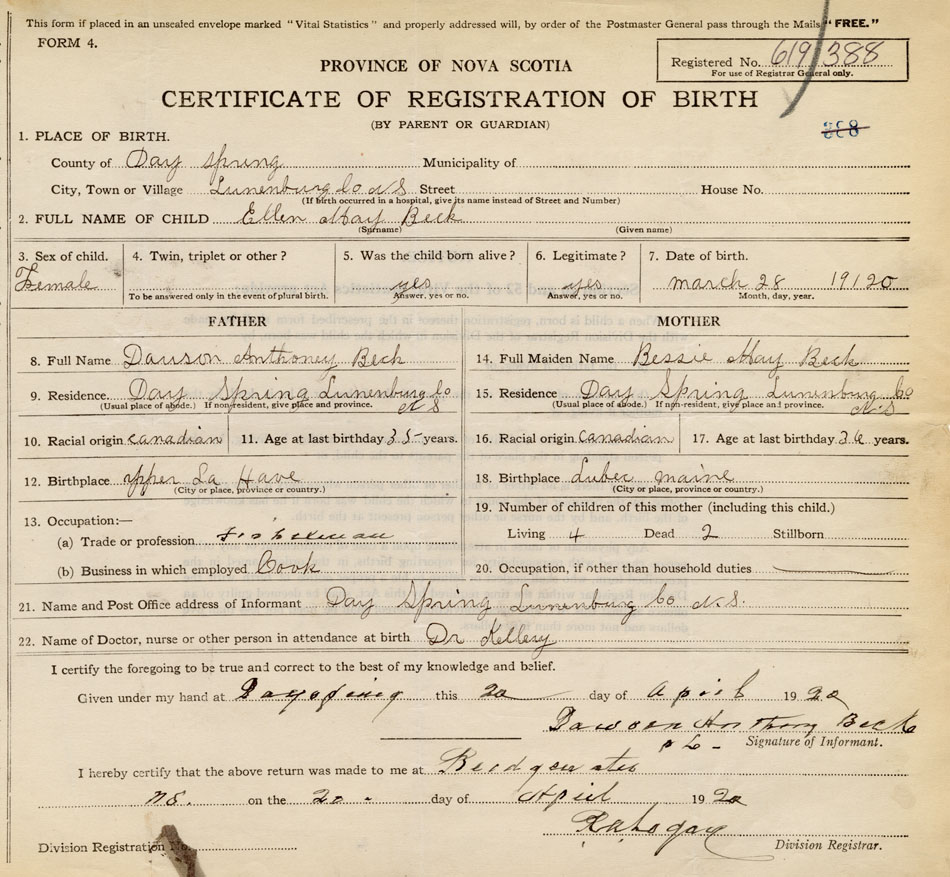 This form if placed in an unsealed envelope marked "Vital Statistics" and properly addressed will, by order of the Postmaster General pass through the Mails "FREE."
FORM 4.
Registered No. 619388
For use of Registrar General only.
PROVINCE OF NOVA SCOTIA
CERTIFICATE OF REGISTRATION OF BIRTH
(BY PARENT OR GUARDIAN)
1. PLACE OF BIRTH.
County of Day Spring Municipality of
City, Town or Village Lunenburg Co N S Street House No.
(If birth occurred in a hospital, give its name instead of Street and Number)
2. FULL NAME OF CHILD Ellen May Beck
(Surname) (Given name)
3. Sex of child. 4. Twin, triplet or other? 5. Was the child born alive? 6. Legitimate? 7. Date of birth.
Female yes yes march 28 19120
To be answered only in the event of plural birth. Answer, yes or no. Answer, yes or no. Month, day, year.
FATHER MOTHER
8. Full Name Dauson Anthoney Beck 14. Full Maiden Name Bessie May Beck
9. Residence. Day Spring Lunenburg Co N S 15. Residence Day Spring Lunenburg Co N.S
(Usual place of abode.) If non-resident, give place and province. (Usual place of abode.) If non-resident, give place and province.
10. Racial origin canadian 11. Age at last birthday 35 years. 16. Racial origin Canadian 17. Age at last birthday 36 years.
12. Birthplace upper La Have 18. Birthplace Lubec maine
(City or place, province or country.) (City or place, province or country.)
13. Occupation:— 19. Number of children of this mother (including this child.)
(a) Trade or profession Fisherman Living 4 Dead 2 Stillborn
(b) Business in which employed Cook 20. Occupation, if other than household duties
21. Name and Post Office address of Informant Day Spring Lunenburg Co N.S.
22. Name of Doctor, nurse or other person in attendance at birth Dr
I certify the foregoing to be true and correct to the best of my knowledge and belief.
Given under my hand at Dayspring this 20 day of April 1920
Dawson Anthony Beck
Signature of Informant.
I hereby certify that the above return was made to me at Bridgewater
NS. on the 20 day of April 1920
Division Registration No. Division Registrar.